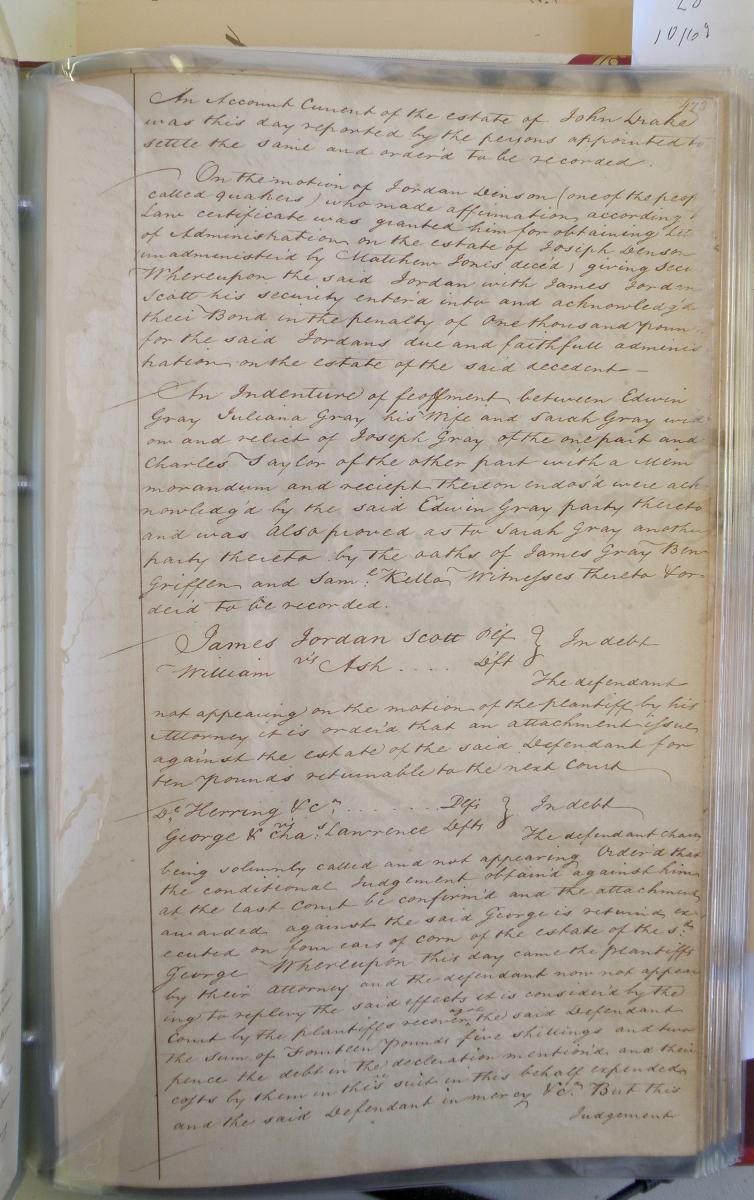 10/68
423
An Account Current of the estate of John Drake
was this day reported by the persons appointed to
settle the same and order'd to be recorded.
On the motion of Jordan Denson (one of the peop
called quakers) who made affirmation according
Law certificate was granted him for obtaining Let
of Administration on the estate of Joseph Denson
unadminister'd by Matthew Jones dec'd, giving secu
Whereupon the said Jordan with James Jordan
Scott his security enter'd into and acknowledg'd
their Bond in the penalty of One thousand poun
for the said Jordans due and faithfull adminis
tration on the estate of the said decedent
An Indenture of feoffment between Edwin
Gray Juliana Gray his Wife and Sarah Gray wid
ow and relict of Joseph Gray of the one part and
Charles Taylor of the other part with a Mem
morandum and reciept thereon endos'd were ack
nowledg'd by the said Edwin Gray party thereto
and was also proved as to Sarah Gray another
party thereto by the oaths of James Gray Ben
Griffen and Sam:l Kello Witnesses thereto & or
der'd to be recorded.
James Jordan Scott Plf } In debt
vs
William Ash .... Dft
The defendant
not appearing on the motion of the plaintiff by his
Attorney it is order'd that an attachment issue
against the estate of the said Defendant for
ten pounds returnable to the next Court
Herring &c. ....... Plfs } In debt
vs
George & Cha:s Lawrence Defts
The defendant
being solemnly called and not appearing Order'd that
the conditional Judgement obtain'd against him
at the last Court be confirm'd and the attachment
awarded against the said George is return'd ex
ecuted on four ears of corn of the estate of the sd.
George Whereupon this day came the plantiffs
by their attorney and the defendant now not appear
ing to replevy the said effects it is consider'd by the
Court by the plantiffs recover the said Defendant
the sum of Fourteen pounds five shillings and two
pence the debt in the decleration mention'd and their
costs by them in this suit in this behalf expended
and the said Defendant in mercy &c. But this
Judgement